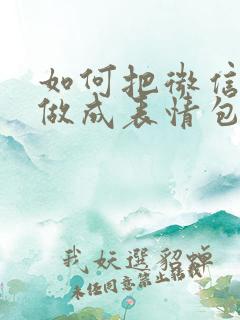 如何把微信
做成表情包
我妖選貂蝉
未任同意禁止転載